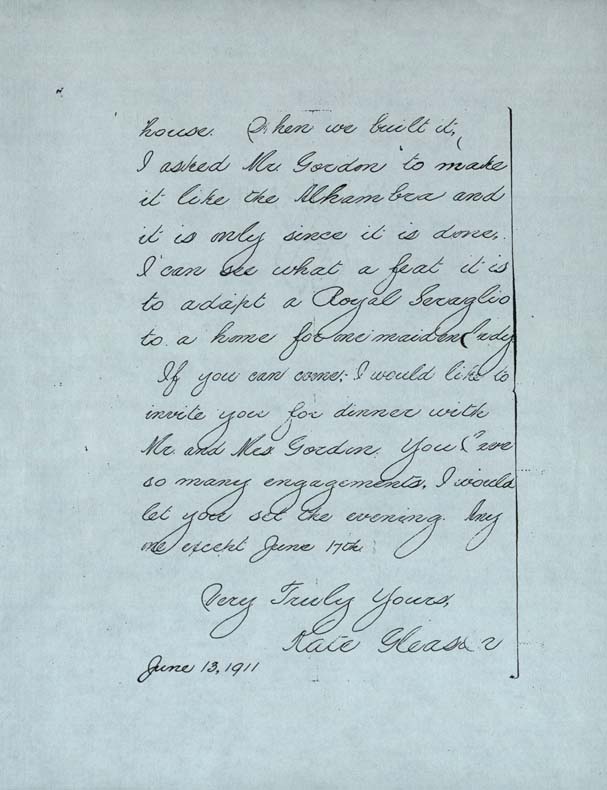 house. When we built it,
I asked Mr. Gordon to make
it like the Alhambra and
it is only since it is done,
I can see what a feat it is
to adapt a Royal Seraglio
to a home for one maiden lady
If you can come, I would like to
invite you for dinner with
Mr. and Mrs Gordon. You have
so many engagements, I would
let you set the evening. Any
one except June 17th.
Very Truly Yours,
Kate Gleason
June 13, 1911